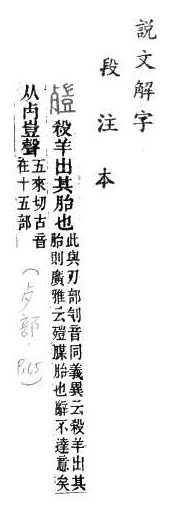 説文解字
段注本
殺羊出其胎也
此與刃部刏音同義異云殺羊出其
胎則廣雅云殰腜胎也辭不達意矣
从歺豈聲
五來切古音
在十五部
(歺部. P.165)